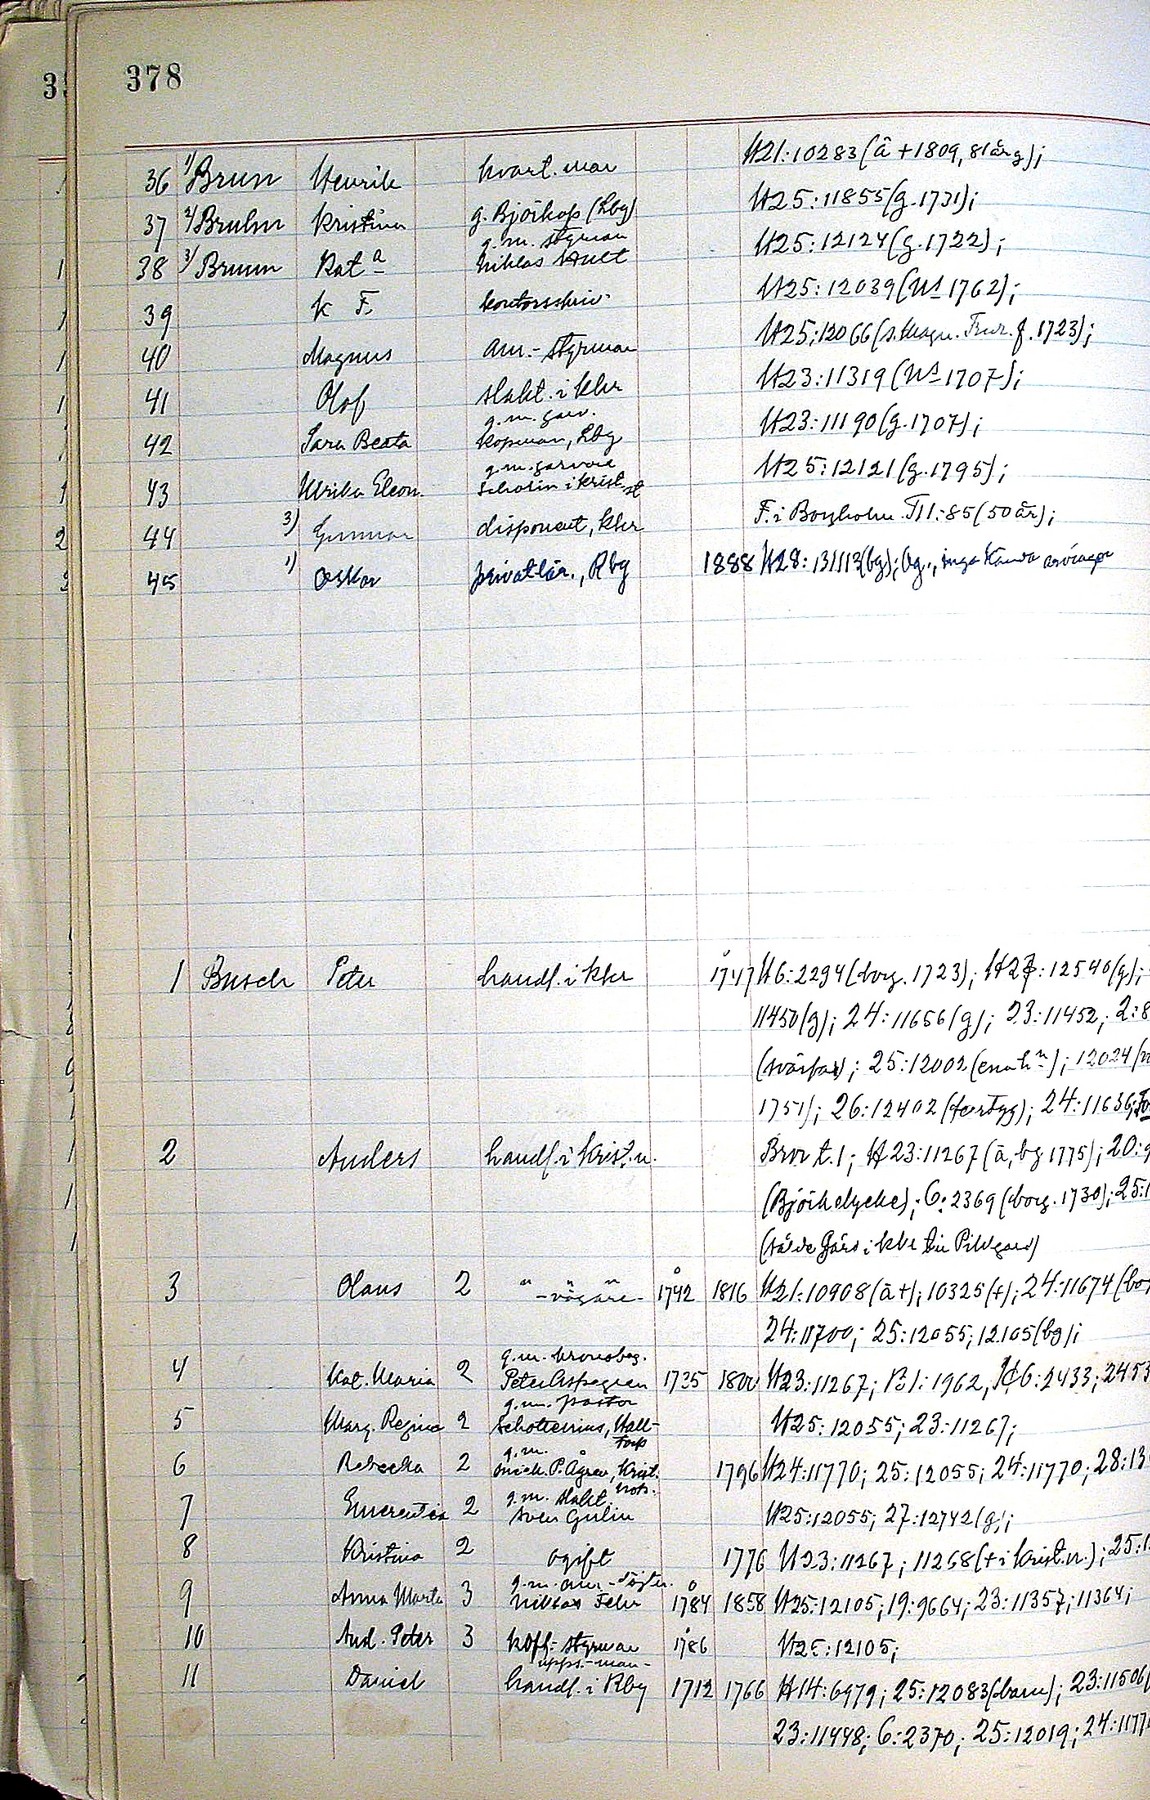 378
36 1/ Brun Henrik kvart. man H21:10283 (å +1809, 81 år g);
37 2/ Bruhn Kristina g. Björkop (Lbg) H25:11855 (g. 1731);
38 3/ Bruun Kat a g.m. styrman Niklas Hult H25:12124 (g. 1722);
39 K F. kontorsskriv. H25:12039 (Ms 1762);
40 Magnus am.-styrman H25:12066 (s. Magn. f. 1723);
41 Olof slakt. i khr H23:11319 (Ms 1707);
42 Sara Beata g.m. garv. Kopman, Lbg H23:11190 (g. 1707);
43 Ulrika Eleon. g.m. garvare Scholin i Krist.st H25:12121 (g. 1795);
44 3) Gunnar disponent, khr F. i Borgholm. T11:85 (50 år);
45 1) Oskar privatlär., Rbg 1888 H28:13111 (bg); bg., inga kända arvingar
1 Busch Peter handl. i khr 1747 H6:2294 (borg. 1723); H27:12540 (g);
11450 (g); 24:11656 (g); 23:11452; 2:8
(svärfar); 25:12002 (enah n); 12024
1751); 26:12402 (fartyg); 24:11636;
2 Anders handl. i Krist.n. Brev t. 1; H23:11267 (å, bg 1775); 20:9
(Björkelycke); 6:2369 (borg. 1730); 25:1
(sålde gård i khr till Pihlgard)
3 Olaus 2 " - vågare - 1742 1816 H21:10908 (å +); 10325 (+); 24:11674 (bo
24:11700; 25:12055; 12105 (bg);
4 Kat. Maria 2 g.m. kronobeg. Peter Aspegren 1735 1800 H23:11267; B1:1962, H6:2433; 2453
5 Marg. Regina 2 g.m. pastor Scholienius, Halltorp H25:12055; 23:11267;
6 Rebecka 2 g.m. snick. P. Ågren, Krist. 1796 H24:11770; 25:12055; 24:11770; 28:13
7 Emerentia 2 g.m. slakt. Sven Gulin H25:12055; 27:12742 (g);
8 Kristina 2 ogift 1776 H23:11267; 11268 (+ i Krist.n.); 25:1
9 Anna Marta 3 g.m. am.- Niklas Fehr 1784 1858 H25:12105; 19:9664; 23:11357; 11364;
10 And. Peter 3 koff.-styrman 1786 H25:12105;
11 Daniel upps.-man- handl. i Rby 1712 1766 H14:6979; 25:12083 (barn); 23:11506
23:11448; 6:2370; 25:12019; 24:1177